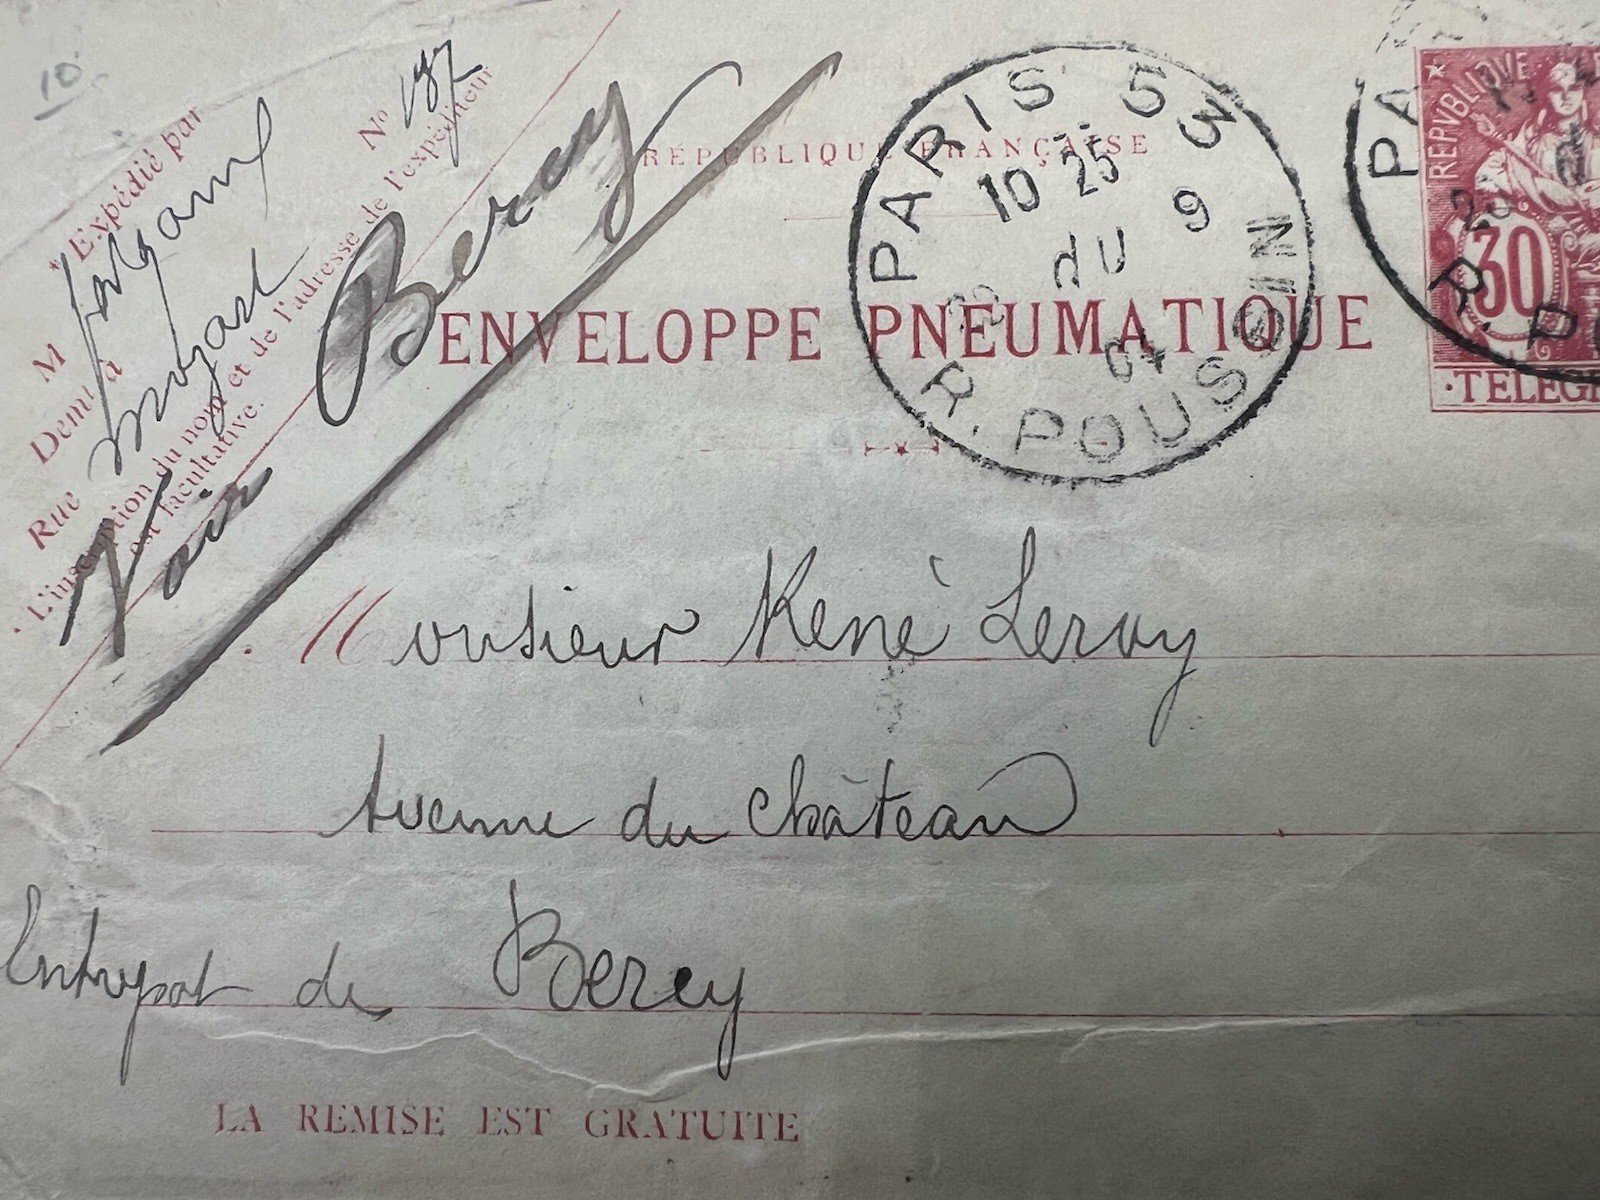 10
Expédié par
M
Demt à
Rue Mozart
No 187
L'inscription du nom et de l'adresse de l'expéditeur
est facultative.
Voir Bercy
RÉPUBLIQUE FRANÇAISE
ENVELOPPE PNEUMATIQUE
PARIS 53
10 25
DU
9
04
R. POUSSIN
REPVBLIQVE
30
TELEG
PA
R. P
Monsieur René Leroy
Avenue du Château
Entrepot de Bercy
LA REMISE EST GRATUITE